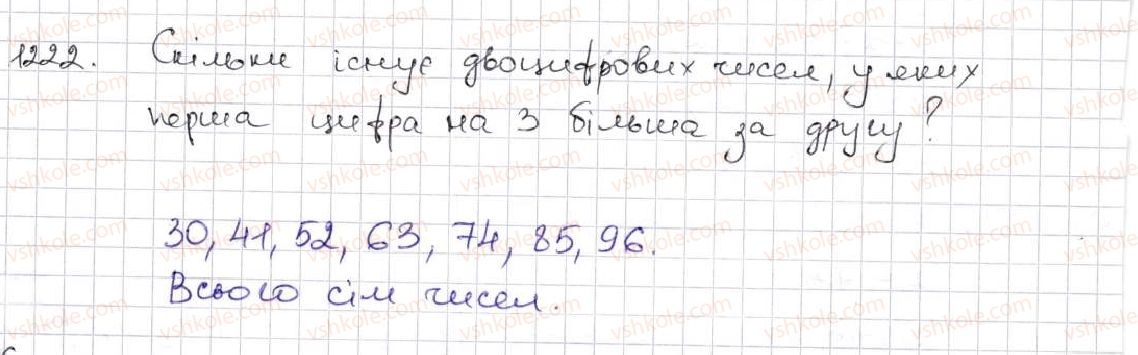 1222. Скільки існує двоцифрових чисел, у яких
перша цифра на 3 більша за другу?
30, 41, 52, 63, 74, 85, 96.
Всього сім чисел.